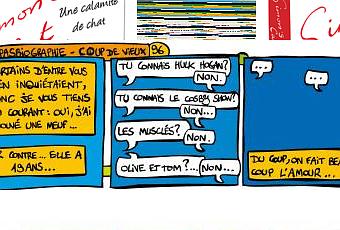 Une calamité
de chat
PASBIOGRAPHIE - COUP DE VIEUX 96
RTAINS D'ENTRE VOUS
EN INQUIÉTAIENT,
ONC JE VOUS TIENS
COURANT : OUI, J'AI
OUVÉ UNE MEUF...
CONTRE... ELLE A
19 ANS...
TU CONNAIS HULK HOGAN?
NON.
TU CONNAIS LE COSBY SHOW?
NON...
LES MUSCLÉS?
NON.
OLIVE ET TOM?...
NON...
...
...
DU COUP, ON FAIT BEA
COUP L'AMOUR...